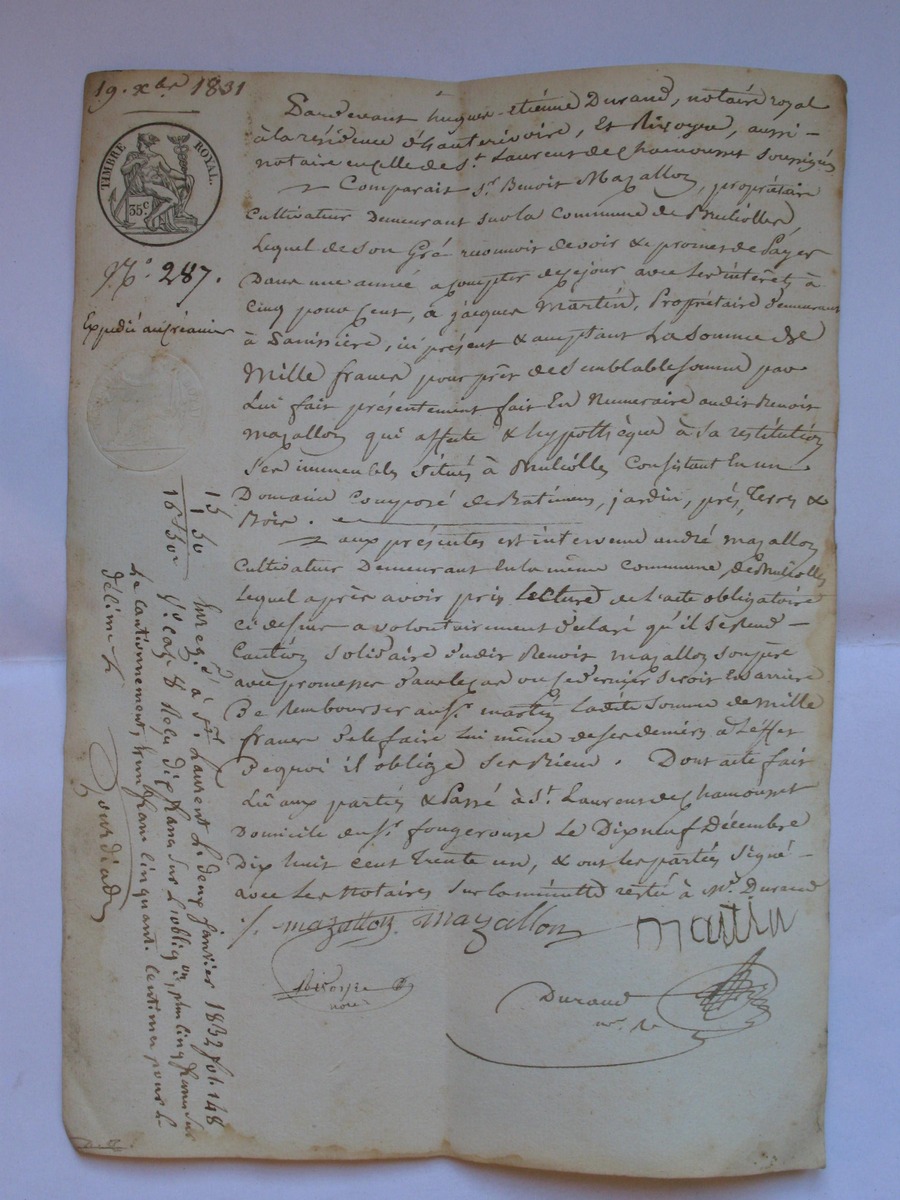 19. xbre 1831
TIMBRE ROYAL.
35 c
N.o 287.
Expédié au créancier
Pardevant hugues-étienne Durand, notaire royal
à la résidence et Rivoyre, aussi
notaire en celle de St. Laurent de Chamousset soussignés
Comparait Sr. Benoit Mazallon, propriétaire
Cultivateur Demeurant sur la Commune de Bruliolles
Lequel de son Gré reconnoit devoir & promet de Payer
Dans une année a compter de ce jour avec les intérêts à
Cinq pour cent, à jacques Martin, Propriétaire demeurant
à ici présent & acceptant La somme de
Mille francs pour prêt de semblable somme par
Lui fait présentement fait En Numeraire audit Benoit
mazallon qui affecte & hypothèque à sa restitution
Ses immeubles situés à Bruliolles Consistant En un
Domaine Composé de Batimens, jardin, prés, Terres &
Bois.
aux présentes est intervenu andré mazallon
Cultivateur Demeurant En la même Commune de Brulliolles
Lequel après avoir pris Lecture de L'acte obligatoire
ci dessus a volontairement déclaré qu'il se Rend
Caution Solidaire dudit Benoit mazallon son père
avec promesse dans le cas ou ce dernier seroit En arriere
De Rembourser au Sr. martin Ladite Somme de Mille
francs De le faire Lui même de ses deniers à L'effet
De quoi il oblige ses Biens. Dont acte fait
Lû aux parties & Passé à St. Laurent de Chamousset
Domicile du Sr. fougerouse Le Dix neuf Décembre
Dix huit cent Trente un, & ont les parties Signé
avec Les Notaires sur la minutte restée à Me. Durand
mazallon. mazallon martin
Rivoyre
nore
Durand
15
1 50
16 50c
Enreg.é à St. Laurent Le deux Janvier 1832 fol. 148
Vo. Reçu dix francs sur L'oblig.on, plus cinq francs sur
Le Cautionnement, & un franc cinquante centimes pour le
décime